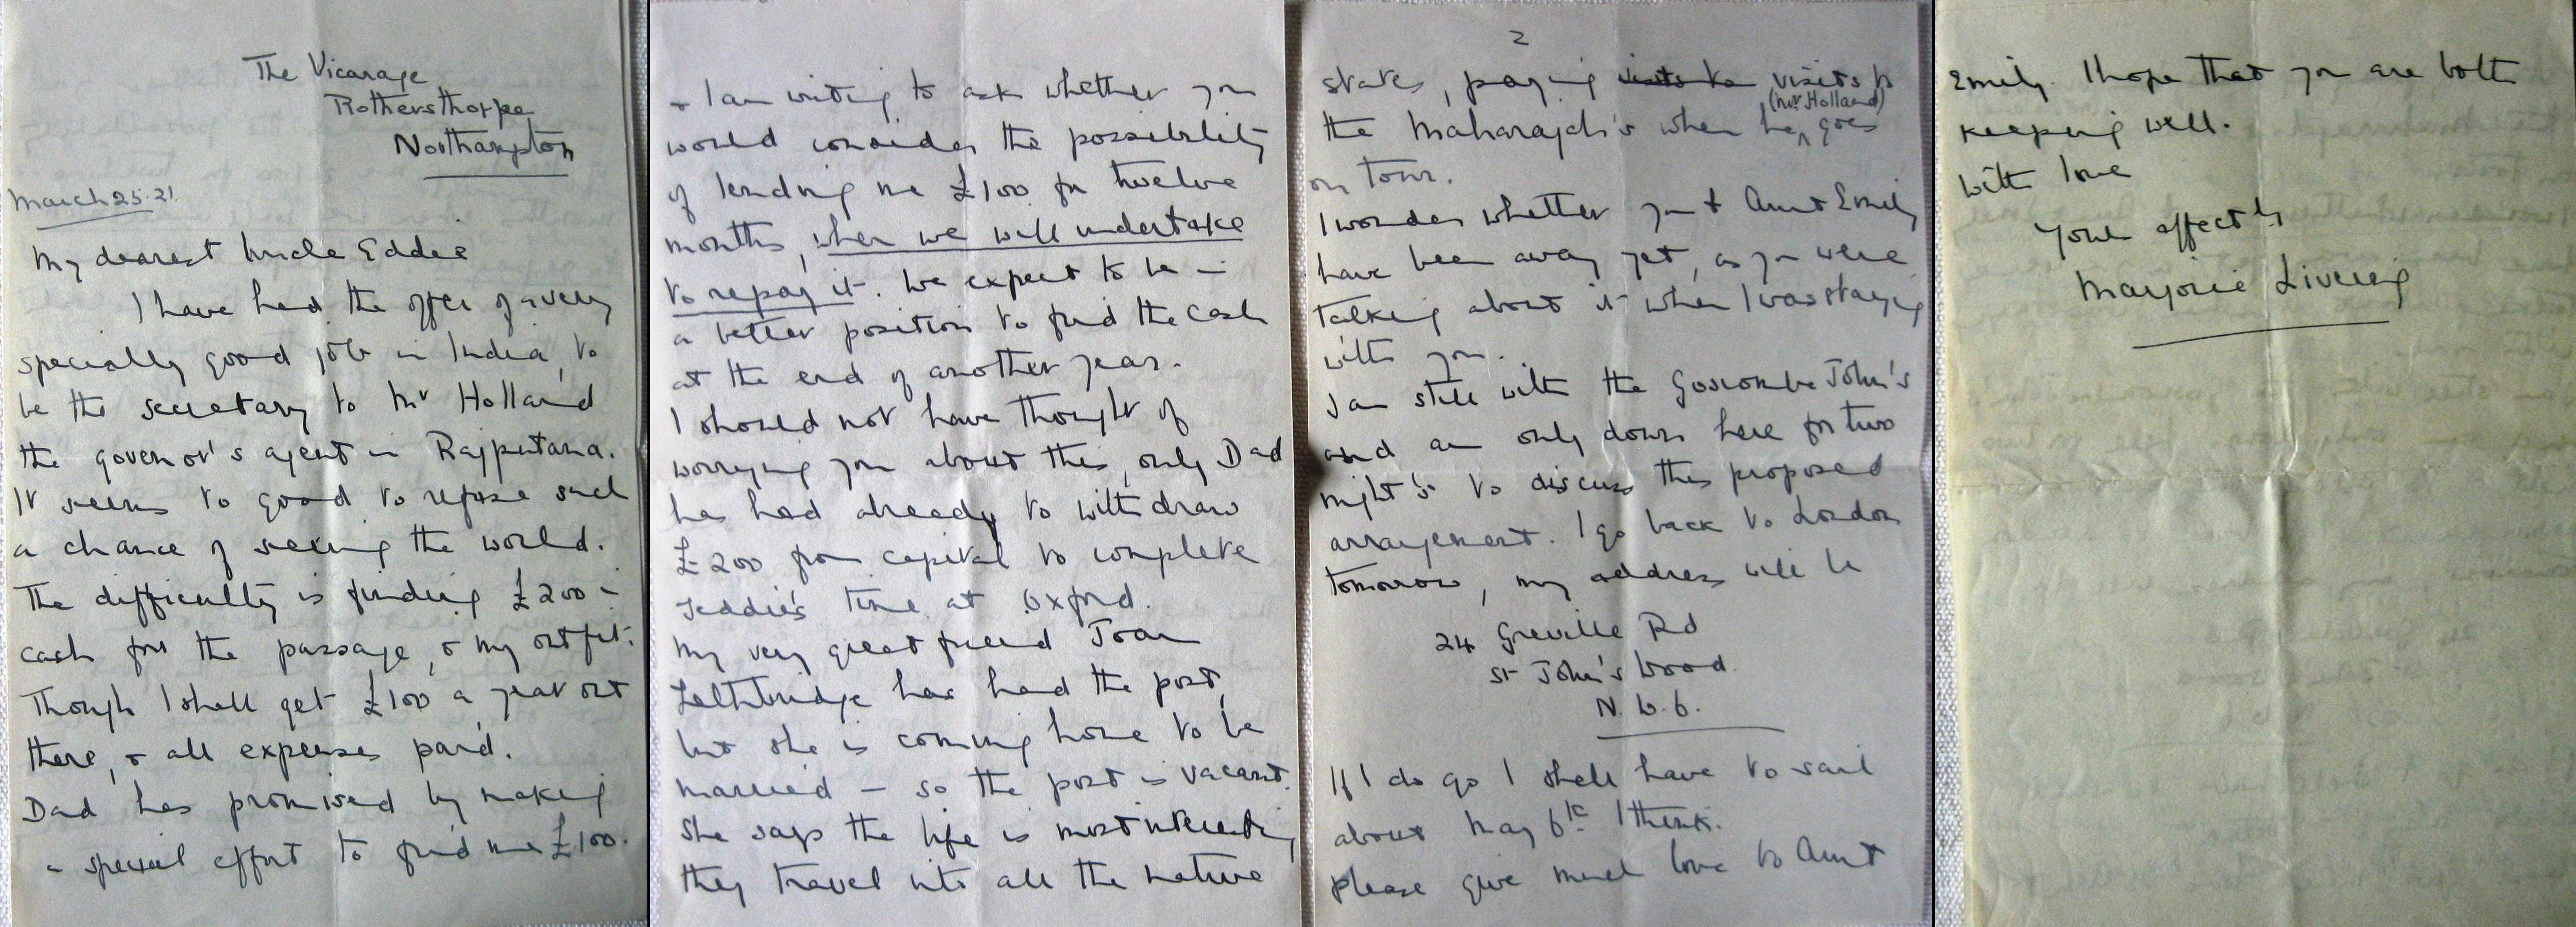 The Vicarage
Rothersthorpe
Northampton
March 25. 21.
My dearest Uncle Eddie
I have had the offer of a very
specially good job in India, to
be the secretary to Mr Holland
the govenor's agent in Rajputana.
It seems to good to refuse such
a chance of seeing the world.
The difficulty is finding £200 in
cash for the passage, & my outfit.
Though I shall get £100 a year out
there, & all expenses paid.
Dad has promised by making
a special effort to find me £100.
& I am writing to ask whether you
would consider the possibility
of lending me £100 for twelve
months, when we will undertake
to repay it. We expect to be in
a better position to find the cash
at the end of another year.
I should not have thought of
worrying you about this, only Dad
has had already to withdraw
£200 from capital to complete
Teddie's time at Oxford.
My very great friend Joan
Lethbridge has had the post,
but she is coming home to be
married - so the post is vacant.
She says the life is most interesting
they travel into all the native
2
states, paying visits to visits to
(Mr Holland)
the Maharajah's when he goes
on tour.
I wonder whether you & Aunt Emily
have been away yet, as you were
talking about it when I was staying
with you.
I am still with the Goscombe John's
and am only down here for two
night's to discuss this proposed
arrangement. I go back to London
tomorrow, my address will be
24 Greville Rd
St John's Wood.
N.W.6.
If I do go I shall have to sail
about May 6th I think.
Please give much love to Aunt
Emily. I hope that you are both
keeping well.
With love
Your affectly
Marjorie Liveing